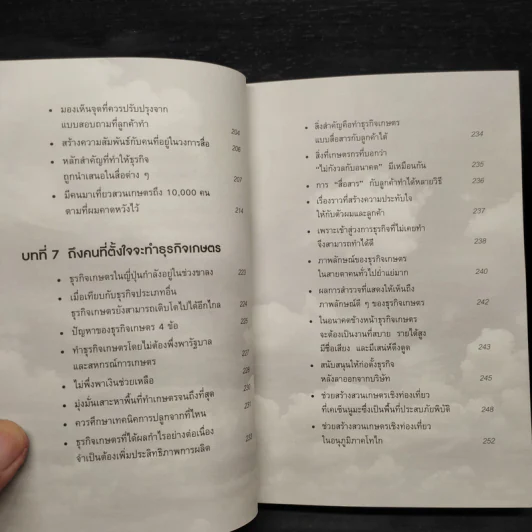 • มองเห็นจุดที่ควรปรับปรุงจาก
แบบสอบถามที่ลูกค้าทำ 204
• สร้างความสัมพันธ์กับคนที่อยู่ในวงการสื่อ 206
• หลักสำคัญที่ทำให้ธุรกิจ
ถูกนำเสนอในสื่อต่าง ๆ 207
• มีคนมาเที่ยวสวนเกษตรถึง 10,000 คน
ตามที่ผมคาดหวังไว้ 214
บทที่ 7 ถึงคนที่ตั้งใจจะทำธุรกิจเกษตร
• ธุรกิจเกษตรในญี่ปุ่นกำลังอยู่ในช่วงขาลง 223
• เมื่อเทียบกับธุรกิจประเภทอื่น
ธุรกิจเกษตรยังสามารถเติบโตไปได้อีกไกล 224
• ปัญหาของธุรกิจเกษตร 4 ข้อ 225
• ทำธุรกิจเกษตรโดยไม่ต้องพึ่งพารัฐบาล
และสหกรณ์การเกษตร 227
• ไม่พึ่งพาเงินช่วยเหลือ 229
• มุ่งมั่นเสาะหาพื้นที่ทำเกษตรจนถึงที่สุด 230
• ควรศึกษาเทคนิคการปลูกจากที่ไหน 231
• ธุรกิจเกษตรที่ได้ผลกำไรอย่างต่อเนื่อง
จำเป็นต้องเพิ่มประสิทธิภาพการผลิต
• สิ่งสำคัญคือทำธุรกิจเกษตร
แบบสื่อสารกับลูกค้าได้ 234
• สิ่งที่เกษตรกรที่บอกว่า
"ไม่กังวลกับอนาคต" มีเหมือนกัน 235
• การ "สื่อสาร" กับลูกค้าทำได้หลายวิธี 236
• เรื่องราวที่สร้างความประทับใจ
ให้กับตัวผมและลูกค้า 237
• เพราะเข้าสู่วงการธุรกิจที่ไม่เคยทำ
จึงสามารถทำได้ดี 238
• ภาพลักษณ์ของธุรกิจเกษตร
ในสายตาคนทั่วไปย่ำแย่มาก 240
• ผลการสำรวจที่แสดงให้เห็นถึง
ภาพลักษณ์ดี ๆ ของธุรกิจเกษตร 242
• ในอนาคตข้างหน้าธุรกิจเกษตร
จะต้องเป็นงานที่สบาย รายได้สูง
มีชื่อเสียง และมีเสน่ห์ดึงดูด 243
• สนับสนุนให้ก่อตั้งธุรกิจ
หลังลาออกจากบริษัท 245
• ช่วยสร้างสวนเกษตรเชิงท่องเที่ยว
ที่เคเซ็นนุมะซึ่งเป็นพื้นที่ประสบภัยพิบัติ 248
• ช่วยสร้างสวนเกษตรเชิงท่องเที่ยว
ในอนุภูมิภาคโทโก 252